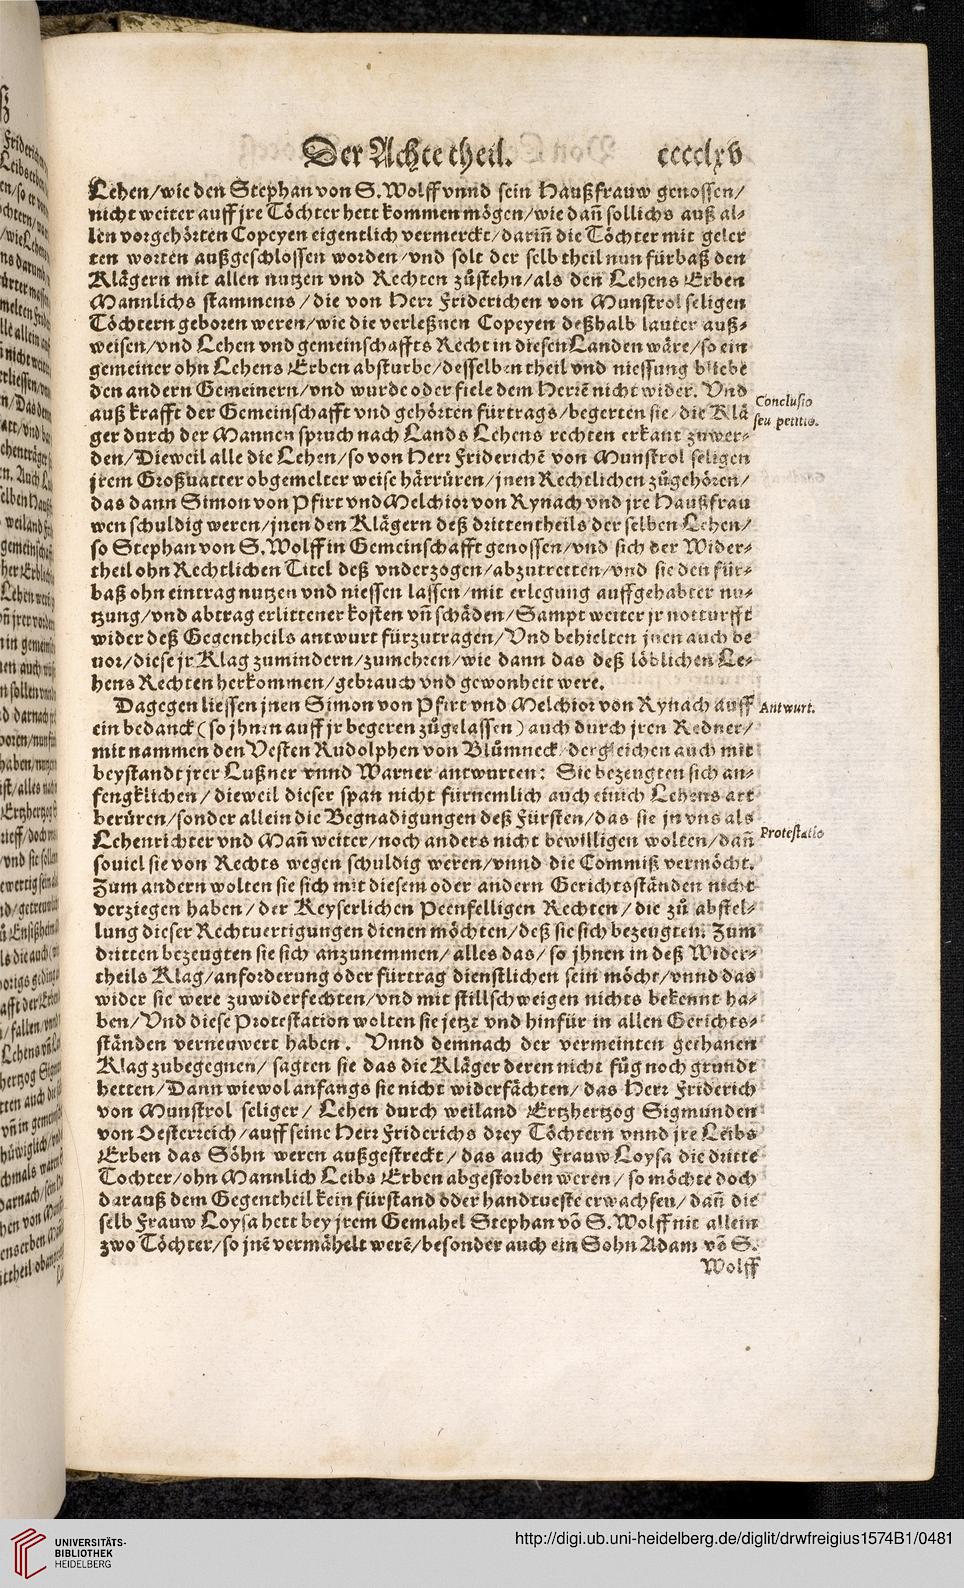 Der Achte theil. cccclxv
Lehen/wie den Stephan von S. Wolff vnnd sein Haußfrauw genossen/
nicht weiter auff jre Töchter hett kommen mögen/wie dañ sollichs auß al⸗
len vorgehörten Copeyen eigentlich vermerckt/dariñ die Töchter mit geler
ten worten außgeschlossen worden/vnd solt der selb theil nun fürbaß den
Klägern mit allen nutzen vnd Rechten zůstehn/als den Lehens Erben
Mannlichs stammens/die von Herr Friderichen von Munstrol seligen
Töchtern geboren weren/wie die verleßnen Copeyen deßhalb lauter auß⸗
weisen/vnd Lehen vnd gemeinschaffts Recht in diesen Landen wäre/so ein
gemeiner ohn Lehens Erben absturbe/desselben theil vnd niessung bliebe
den andern Gemeinern/vnd wurde oder fiele dem Herrē nicht wider. Vnd
auß krafft der Gemeinschafft vnd gehörten fürtrags/begerten sie/die Klä
ger durch der Mannen spruch nach Lands Lehens rechten erkant zuwer⸗
den/Dieweil alle die Lehen/so von Herr Friderichē von Munstrol seligen
jrem Großuatter obgemelter weise härrüren/jnen Rechtlichen zůgehören/
das dann Simon von Pfirt vnd Melchior von Rynach vnd jre Haußfrau
wen schuldig weren/jnen den Klägern deß drittentheils der selben Lehen/
so Stephan von S. Wolff in Gemeinschafft genossen/vnd sich der Wider⸗
theil ohn Rechtlichen Titel deß vnderzogen/abzutretten/vnd sie den für⸗
baß ohn eintrag nutzen vnd niessen lassen/mit erlegung auffgehabter nu⸗
tzung/vnd abtrag erlittener kosten vñ schäden/Sampt weiter jr notturfft
wider deß Gegentheils antwurt fürzutragen/Vnd behielten jnen auch be
uor/diese jr Klag zumindern/zumehren/wie dann das deß löblichen Le⸗
hens Rechten herkommen/gebrauch vnd gewonheit were.
Conclusio
seu petitio.
Dagegen liessen jnen Simon von Pfirt vnd Melchior von Rynach auff
ein bedanck (so jhnen auff jr begeren zůgelassen) auch durch jren Redner/
mit nammen den Vesten Rudolphen von Blůmneck/dergleichen auch mit
beystandt jrer Lußner vnnd Warner antwurten: Sie bezeugten sich an⸗
fengklichen/dieweil dieser span nicht fürnemlich auch einich Lehens art
berüren/sonder allein die Begnadigungen deß Fürsten/das sie jn vns als
Lehenrichter vnd Mañ weiter/noch anders nicht bewilligen wolten/dañ
souiel sie von Rechts wegen schuldig weren/vnnd die Commiß vermöcht.
Zum andern wolten sie sich mit diesem oder andern Gerichtsständen nicht
verziegen haben/der Keyserlichen Peenfelligen Rechten/die zů abstel⸗
lung dieser Rechtuertigungen dienen möchten/deß sie sich bezeugten. Zum
dritten bezeugten sie sich anzunemmen/alles das/so jhnen in deß Wider⸗
theils Klag/anforderung oder fürtrag dienstlichen sein möcht/vnnd das
wider sie were zuwiderfechten/vnd mit stillschweigen nichts bekennt ha⸗
ben/Vnd diese Protestation wolten sie jetzt vnd hinfür in allen Gerichts⸗
ständen verneuwert haben. Vnnd demnach der vermeinten gethanen
Klag zubegegnen/sagten sie das die Kläger deren nicht fůg noch grundt
hetten/Dann wiewol anfangs sie nicht widerfächten/das Herr Friderich
von Munstrol seliger/Lehen durch weiland Ertzhertzog Sigmunden
von Oesterreich/auff seine Herr Friderichs drey Töchtern vnnd jre Leibs
Erben das Söhn weren außgestreckt/das auch Frauw Loysa die dritte
Tochter/ohn Mannlich Leibs Erben abgestorben weren/so möchte doch
darauß dem Gegentheil kein fürstand oder handtueste erwachsen/dañ die
selb Frauw Loysa hett bey jrem Gemahel Stephan võ S. Wolff nit allein
zwo Töchter/so jnē vermähelt werē/besonder auch ein Sohn Adam võ S.
Wolff
Antwurt.
Protestatio
UNIVERSITÄTS-
BIBLIOTHEK
HEIDELBERG
http://digi.ub.uni-heidelberg.de/diglit/drwfreigius1574B1/0481